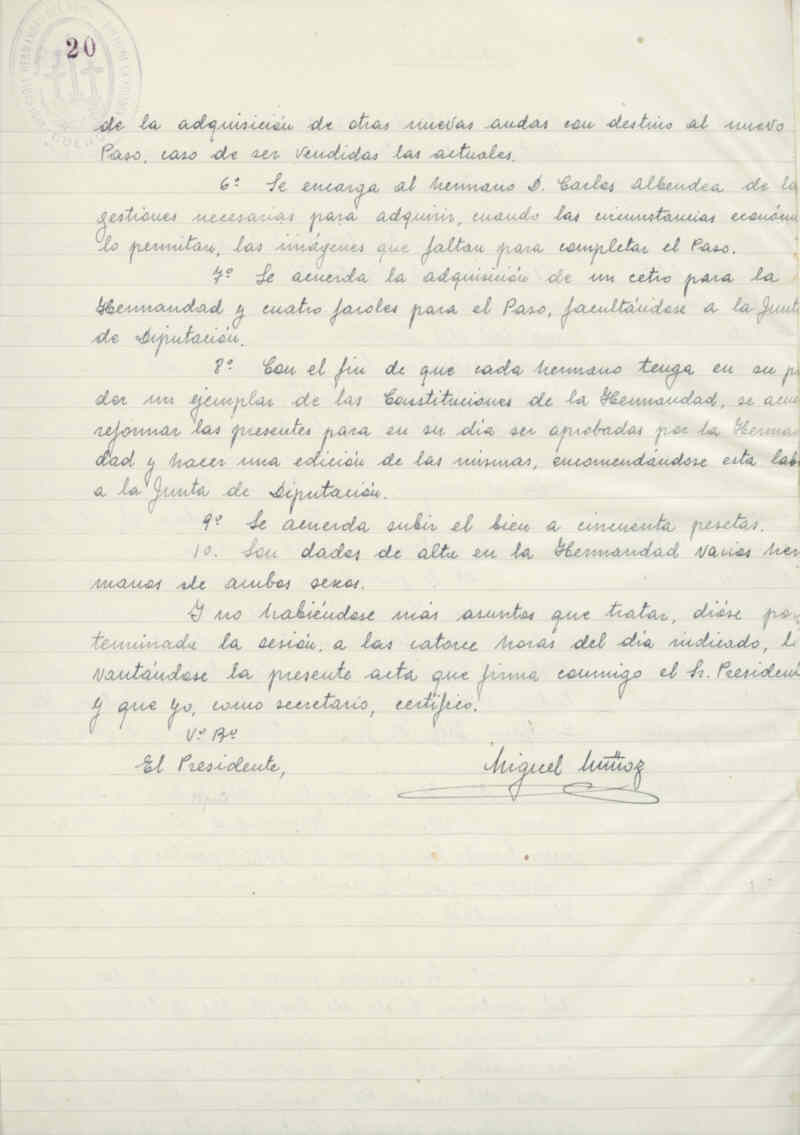 20
de la adquisición de otras nuevas andas con destino al nuevo
Paso, caso de ser vendidas las actuales.
6º Se encarga al hermano D. Carlos Albendea de la
gestiones necesarias para adquirir, cuando las circunstancias económi
lo permitan, las imágenes que faltan para completar el Paso.
7º Se acuerda la adquisición de un cetro para la
Hermandad y cuatro faroles para el Paso, facultándose a la Junta
de Diputación.
8º Con el fin de que cada hermano tenga en su po
der un ejemplar de las Constituciones de la Hermandad, se acue
reformar las presentes para en su día ser aprobadas por la Herman
dad y hacer una edición de las mismas, encomendándose esta labo
a la Junta de Diputación.
9º Se acuerda subir el bien a cincuenta pesetas.
10. Son dados de alta en la Hermandad varios her
manos de ambos sexos.
Y no habiéndose más asuntos que tratar, dióse por
terminada la sesión, a las catorce horas del día indicado, le
vantándose la presente acta que firma conmigo el Sr. President
y que yo, como secretario, certifico.
Vº Bº
El Presidente,
Miguel Muñoz